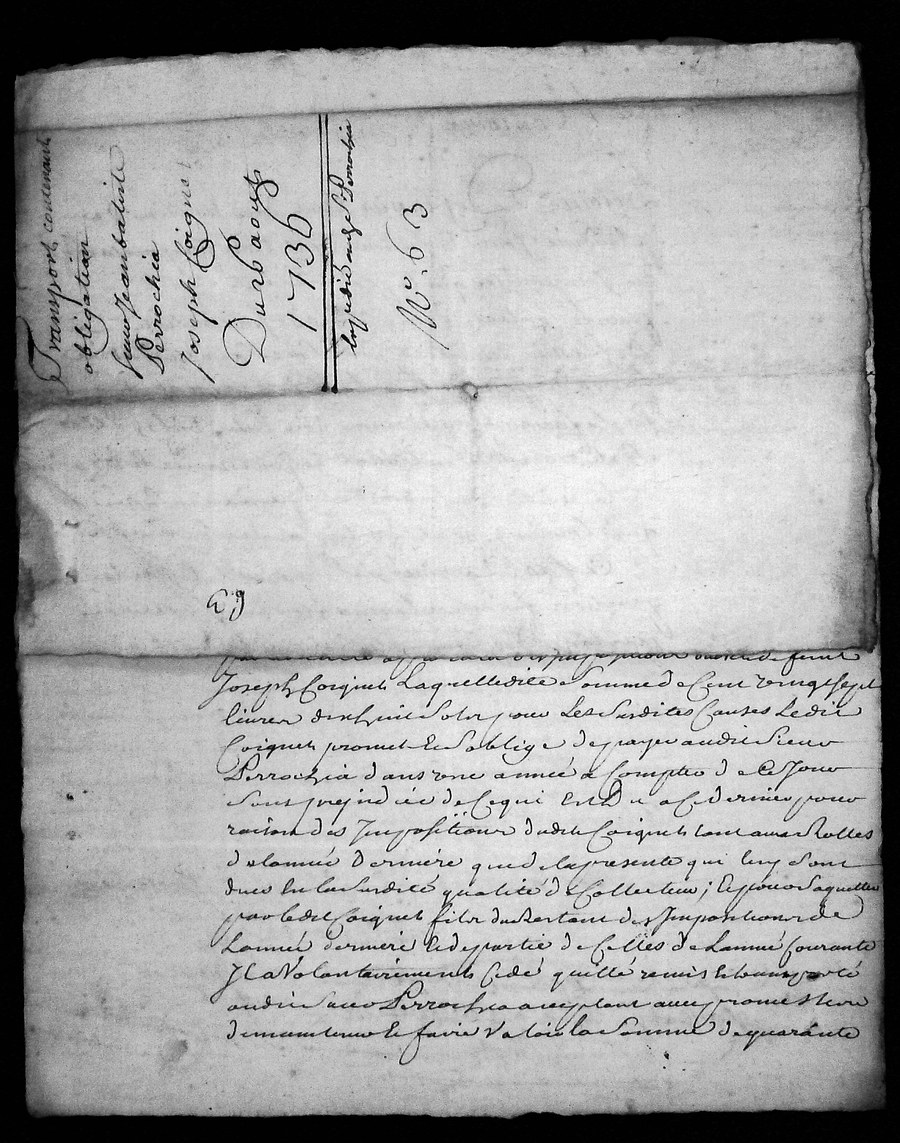 Transport contenant
obligation
Sieur Jeanbatiste
Perrochia
Joseph Coignet
Du 26 aout
1736
Expedié audz. Sr Perrochia
No. 63
Joseph Coignet Laquelle dite Somme de Cent vingt sept
livres dixhuit Sols pour Les Susdites Causes Ledit
Coignet promet Et Soblige de payer audit Sieur
Perrochia dans une année a Compter de Ce Jour
Sans prejudice de Ce qui Est Du a Ce dernier pour
raison des Impositions dudit Coignet tant aux Rolles
de lannée Derniere que de la presente qui luy Sont
dues En la Susdite qualité de Collecteur; Et pour Saquitter
par ledit Coignet fils du Restant des Impositions de
Lannée derniere Et de partie de Celles de Lannée Courante
Il a Volontairement Cedé quitté remis Et transporté
audit Sieur Perrochia acceptant avec promesse de
de maintenir Et faire Valoir la Somme de quarante